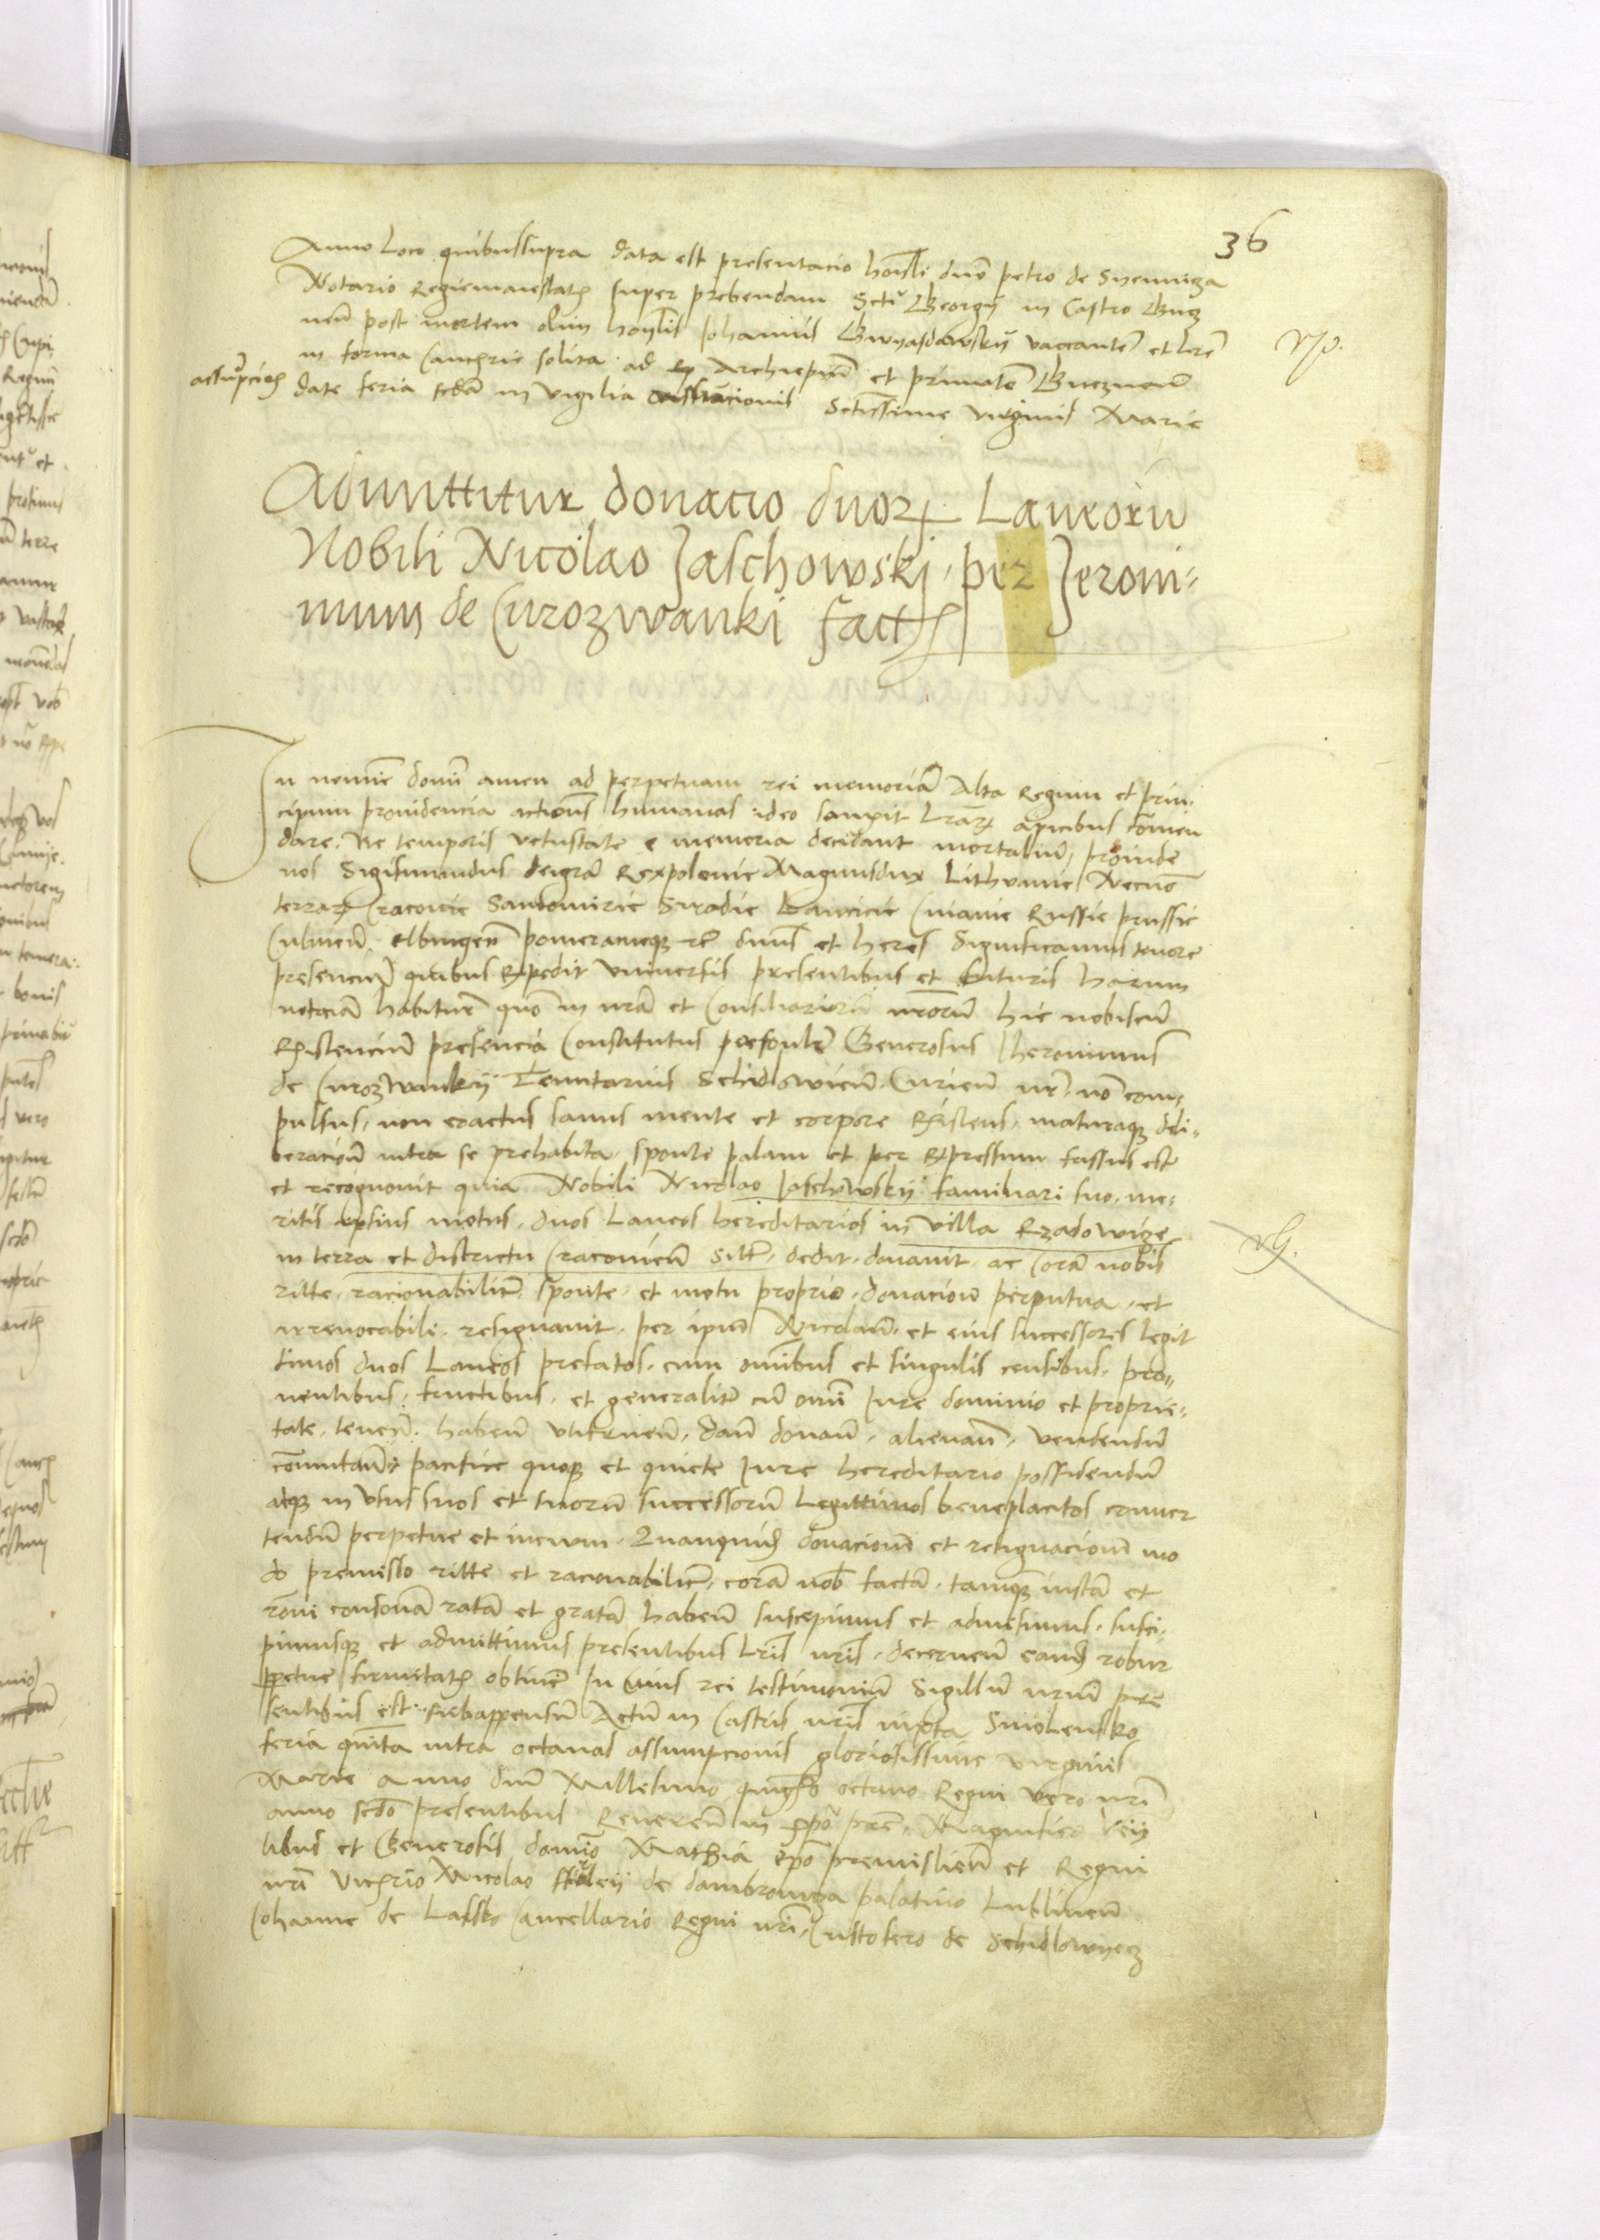 36
Anno Loco quibussupra data est presentacio hon̄li dn̄o petro de Snemniza
Notario Regiemaiestatꝭ super prebendam Scti Georgij in Castro Gnez
nen̄ post mortem olim hon̄lis Johannis Gwyasdowskij vaccantem et lr̄e
in forma Cancꝭrie solita ad Archiepm̄ et primatem Gneznen̄
assu̅pcioīs date feria scd̄a in vigilia Sctissime virginis Marie
Admittitur donacio duoꝝ Laneorū
Nobili Nicolao Jaschowski per Jeroni-
mum de Curozwanki factꝭ
In nomīe domī amen ad perpetuam rei memoriā Alta Regum et prin-
cipum prouidencia actiones humanas ideo sanxit Lrāꝝ apicibus cōmen
dare, Ne temporis vetustate e memoria decidant mortaliū, proinde
nos Sigismundus deigrā Rexpolonie Magnusdux Lithuanie Necnō
terraꝝ Cracouie Sandomirie Siradie Lancicie Cuiauie Russie prussie
Culmen̄ elbingen̄ pomeranieqꝫ rc̄ dn̄us et heres Significamus tenore
presenciū quibus expedit vniuersis presentibus et futuris harum
noticiā habiturꝭ quō in nr̄a et Consiliarioꝝ nr̄orum hic nobiscū
existenciū presencia Constitutus personalr̄ Generosus Iheronimus
de Curozwankij Tenutarius Schidlowien̄ Curien̄ nr̄, nō com-
pulsus, non coactus sanus mente et corpore existens, maturaqꝫ deli-
beracione intra se prehabita, sponte palam et per expressum fassus est
et recognouit quia Nobili Nicolao Jaschowskij familiari suo, me-
ritis ipsius motus, duos Laneos hereditarios in villa Rzadowize
in terra et districtu Cracouien̄ sitꝭ, dedit, donauit, ac Corā nobis
ritte, racionabilitr̄, sponte, et motu proprio, donacione perpetua, et
irreuocabili, resignauit, per ipm̄ Nicolaū, et eius successores legit
timos duos Laneos prefatos, cum omībus et singulis censibus, pro-
uentibus, fructibus, et generalitr̄ cū omī Iure dominio et proprie-
tate, tenen̄, haben̄ vtifruen̄, dan̄ donan̄, alienan̄, vendendū
cōmutan̄ pacifice quoqꝫ et quiete Iure hereditario possidendū
atqꝫ in vsus suos et suorū successorū Legittimos beneplacitos conuer
tendū perpetue et in euum, Quamquidē donacionē et resignacionē mo
do premisso ritte et racionabilitr̄, corā nob̄ factā, tanqꝫ iustā et
rōni consonā ratā et gratā haben̄ suscepimus et admisimus, susci-
pimusqꝫ et admittimus presentibus Lrīs nrīs, decernen̄ eandē robur
ꝑpetue firmitatꝭ obtinere In Cuius rei testimoniū Sigillū nrūm pre
sentibus est subappensū Actū in Castris nrīs iuxta Smolensko
feria quīta infra octauas assumpcionis gloriosissime virginis
Marie Anno dn̄i Millesimo quīgē̄o octauo Regni vero nr̄i
anno scd̄o presentibus Reueren̄ in xp̄o prē, Magnifici
libus et Generosis domīo Mathia ep̄o premislien̄ et Regni
nr̄i vicꝭrio Nicolao de dambrowiza palatino Lublinen̄
Iohanne de Lassko Cancellario Regni nr̄i, Cristofero de Schidlowyecz